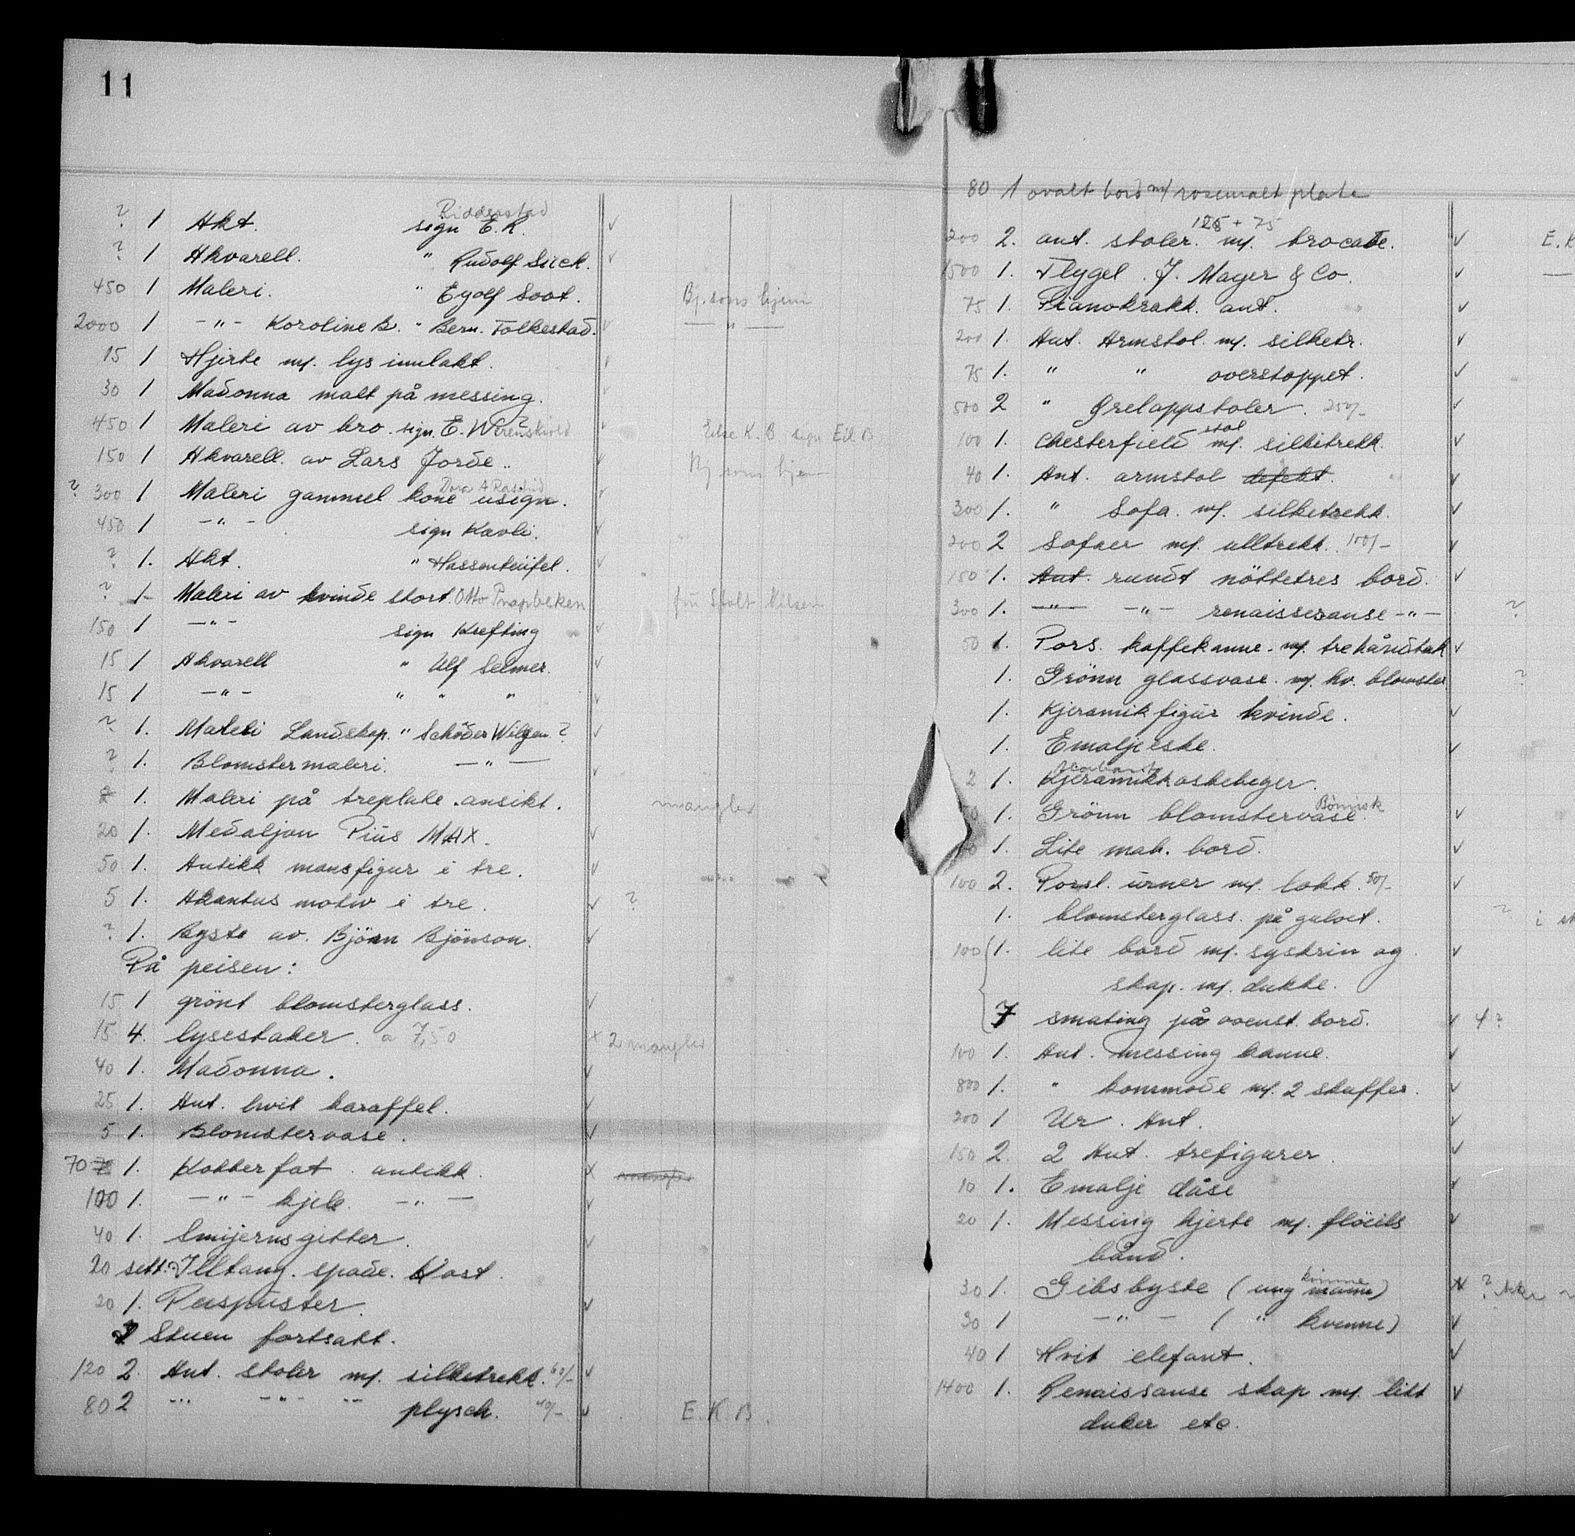 11
? 1 Akt. sign E. R. Ridderstad ✓
? 1 Akvarell. " Rudolf Siick. ✓
450 1 Maleri. " Eyolf Soot. Bj.sons hjem
2000 1 —"— Karoline B. " Bern. Folkestad. ✓ — " —
15 1 Hjerte m/. lys innlakt. ✓
30 1 Madonna malt på messing.
450 1 Maleri av bro. sign. E. Werenskiold ? ✓ Eilse K. B. sign Eil B
150 1 Akvarell. av Lars Jorde.. ✓ Bj sons hjem
? 300 1 Maleri gammel kone usign. ✓
450 1 —"— sign Kavli. ✓
? 1. Akt. " Hassenteüfel. ✓
? 1 Maleri av kvinde stort. Otto fru Stolt Nilsen
150 1 —"— sign Krefting ✓
15 1 Akvarell " Ulf Selmer. ✓
15 1 —"— " " " ✓
? 1. Maleri Landskap. " Schöder Wilgen ? ✓
? 1. Blomstermaleri. —"— ✓
1. Maleri på treplate. ansikt. mangler
20 1. Medaljon Piüs MAX. ✓
50 1. Antikk mansfigur i tre. ✓
5 1. Akantus motiv i tre. ✓ ?
? 1. Byste av. Bjørn Bjönson. ✓
På peisen:
15 1 grönt blomsterglass. ✓
15 4. lysestaker. a 7,50 × 2 mangler
40 1. Madonna. ✓
25 1. Ant. hvit karaffel. ✓
5 1. Blomstervase. ✓
70 1. Kobberfat. antikk. × mangler
100 1. —"— kjele. —"— ✓
40 1. Smijernsgitter. ✓
20 sett. Ildtang. spade. Kost.
20 1. Peispuster. ✓
Stuen fortsatt.
120 2. Ant. stoler m/. silketrekk. 60/- ✓
80 2 " —"— " plysch. 40/- ✓ E. K. B.
80 1 ovalt bord m/ rosemalt plate
125 + 75
200 2. ant. stoler. m/. brocade. ✓ E. K
1500 1. Flygel. J. Mayer & Co. ✓ —
75 1. Pianokrakk. ant. ✓
200 1. Ant. Armstol. m/. silketr. ✓
75 1. " " overstoppet. ✓
500 2 " Ørelappstoler. 250/- ✓
100 1. Chesterfield stol m/. silkitrekk. ✓
40 1. Ant. armstol defekt. ✓
300 1. " Sofa. m/. silketrekk. ✓
200 2 Sofaer m/. ulltrekk. 100/- ✓
150 1. Ant. rundt nöttetres bord. ✓
300 1. —"— —"— renaissesanse —"— ?
50 1. Pors. kaffekanne. m/. trehåndtak ✓
1. Grönn glassvase. m/. hv. blomster ?
1. Kjeramikfigür kvinde. ✓
1. Emaljeeske. ✓
2 1. Kjeramikkaskebeger. ✓
1. Grönn blomstervase. Bömisk ✓
1. Lite mah. bord. ✓
100 2. Porsl. ürner m/. lokk. 50/- ✓
1. blomsterglass. på gulvet. ? i
100 1. lite bord m/. systrin og ✓
skap. m/. dukke.
7 smating på ovenst. bord. ✓ 4?
100 1. Ant. messing kanne. ✓
800 1. " kommode m/. 2 skuffer. ✓
200 1 Ur. Ant. ✓
150 2. 2 Ant. trefigurer. ✓
10 1. Emalje dåse ✓
20 1. Messing hjerte m/. flöiels ✓
bånd.
30 1. Gibsbyste (ung mann) kvinne ?
30 1 —"— ( " kvenne) ✓
40 1 Hvit elefant. ✓
1400 1. Renaissanse skap m/. litt ✓
duker etc.